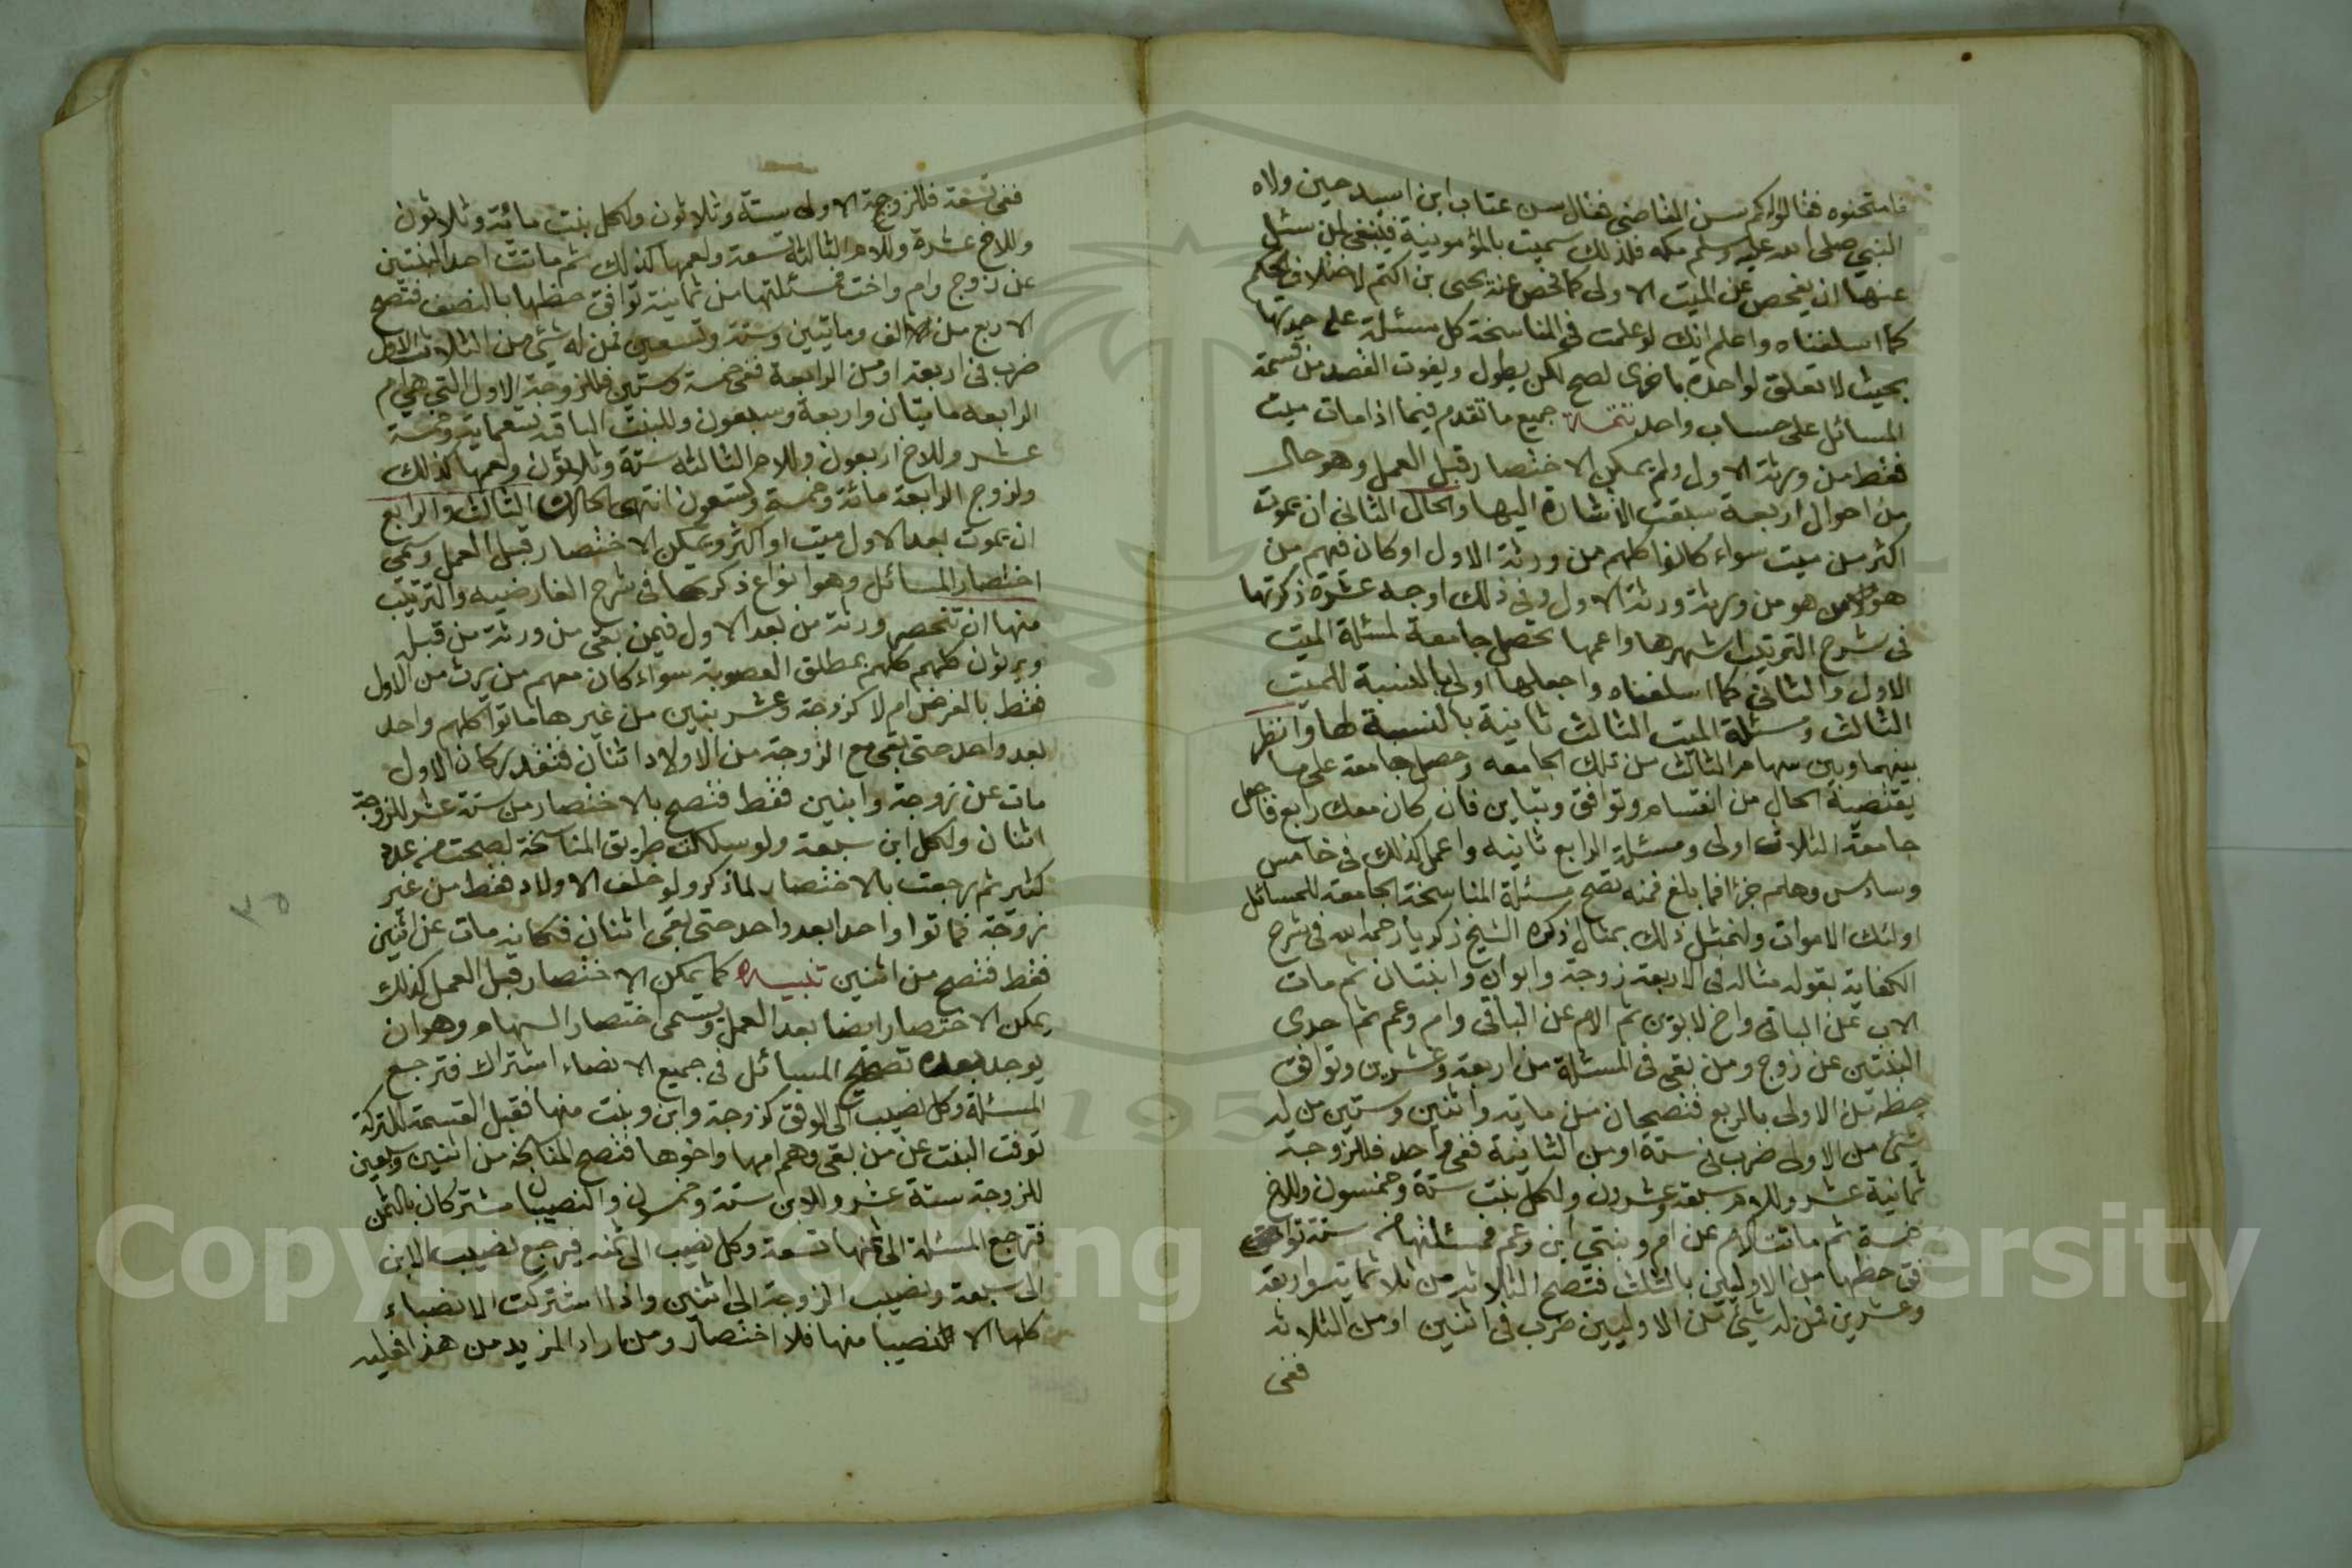 فامتحنوه فقالوا كم سن القاضى فقال سن عتاب ابن اسيد حين ولاه
النبي صلى الله عليه وسلم مكه فلذلك سميت بالمؤمونية فينبغى لمن سئل
عنها ان يفحص عن الميت الاولى كما فحص عنه يحيى بن اكتم لاختلاف الحكم
كما اسلفناه واعلم انك لو علمت في المناسخة كل مسئلة على حيدتها
بحيث لا تعلق لواحدة باخرى لصح لكن يطول ويفوت القصد من قسمة
المسائل على حساب واحد تتمة جميع ما تقدم فيما اذا مات ميت
فقط من ورثة الاول ولم يمكن الاختصار قبل العمل وهو حال
من احوال اربعة سبقت الاشارة اليها والحال الثانى ان يموت
اكثر من ميت سواء كانوا كلهم من ورثة الاول او كان فيهم من
هو من ورثة ورثة الاول وفى ذلك اوجه عشرة ذكرتها
فى شرح الترتيب اشهرها واعمها تحصل جامعة لمسئلة الميت
الاول والثانى كما اسلفناه واجعلها اولى بالنسبة للميت
الثالث ومسئلة الميت الثالث ثانية بالنسبة لها وانظر
بينهما وبين سهام الثالث من تلك الجامعه وحصل جامعة على ما
يقتضية الحال من انقسام وتوافق وتباين فان كان معك رابع فاجعل
جامعة الثلاث اولى ومسئلة الرابع ثانيه واعمل كذلك فى خامس
وسادس وهلم جرا فما بلغ فمنه تصح مسئلة المناسخة الجامعة للمسائل
اولئك الاموات ولنمثل ذلك بمثال ذكره الشيخ زكريا رحمه الله فى شرح
الكفاية بقوله مثاله فى الاربعة زوجة وابوان وابنتان ثم مات
الاب عن الباقى واخ لابوين ثم الام عن الباقى وام وعم ثم احدى
البنتين عن زوج ومن بقى فى المسئلة من اربعة وعشرين وتوافق
حظه من الاولى بالربع فتصحان من ماية واثنين وستين من له
شئ من الاولى ضرب فى ستة او من الثانية ففى واحد فللزوجة
ثمانية عشر وللام سبعة وعشرون ولكل بنت ستة وخمسون وللاخ
خمسة ثم ماتت الام عن ام وبنتي ابن وعم فمسئلتها من ستة توافق
حظها من الاوليين بالثلث فتصح الثلاثة من ثلاثماية واربعة
وعشرين فمن له شئ من الاوليين ضرب فى اثنين او من الثلاثه
ففى
ففى تسعة فللزوجة الاولى ستة وثلاثون ولكل بنت مائة وثلاثون
وللاخ عشرة وللام الثالثة تسعة ولعمها كذلك ثم ماتت احد البنتين
عن زوج وام واخت فمسئلتها من ثمانية توافق حظها بالنصف فتصح
الاربع من الالف وماتيين وستة وتسعين فمن له شئ من الثلاث الاول
ضرب فى اربعة او من الرابعة ففى خمسة وستين فللزوجة الاول التى هى ام
الرابعه مايتان واربعة وسبعون وللبنت الباقيه تسعماية وخمسة
عشر وللاخ اربعون وللام الثالثه ستة وثلاثون ولعمها كذلك
ولزوج الرابعة مائة وخمسة وتسعون انتهى الحالان الثالث والرابع
ان يموت بعد الاول ميت او اكثر ويمكن الاختصار قبل العمل وسمى
اختصار المسائل وهو انواع ذكرتها فى شرح الفارضيه والترتيب
منها ان تنحصر ورثة من بعد الاول فيمن بقى من ورثة من قبله
ويرثون كلهم كلهم بمطلق العصوبة سواء كان معهم من يرث من الاول
فقط بالفرض ام لا كزوجة وعشر بنين من غيرها ماتوا كلهم واحد
بعد واحد حتى بقى مع الزوجة من الاولاد اثنان فنقدر كان الاول
مات عن زوجة وابنين فقط فتصح بالاختصار من ستة عشر للزوجة
اثنان ولكل ابن سبعة ولو سلكت طريق المناسخة لصحت من عدد
كثير ثم رجعت بالاختصار لما ذكر ولو خلف الاولاد فقط من غير
زوجة فماتوا واحدا بعد واحد حتى بقى اثنان فكانه مات عن اثنين
فقط فتصح من اثنين تنبيه كما يمكن الاختصار قبل العمل كذلك
يمكن الاختصار ايضا بعد العمل ويسمى اختصار السهام وهو ان
يوجد بعد تصحيح المسائل فى جميع الانصباء اشتراك فترجع
المسئلة وكل نصيب الى الوفق كزوجة وابن وبنت منها فقبل القسمة للتركة
توفت البنت عن من بقى وهم امها واخوها فتصح المناسخة من اثنين وسبعين
للزوجة ستة عشر وللابن ستة وخمسون والنصيبان مشتركان بالثمن
فترجع المسئلة الى ثمنها تسعة وكل نصيب الى ثمنه فيرجع نصيب الابن
الى سبعة ونصيب الزوجة الى اثنين واذا اشتركت الانصباء
كلها الا نصيبا منها فلا اختصار ومن اراد المزيد من هذا فعليه
٣٥
Copyright © King Saud University
195